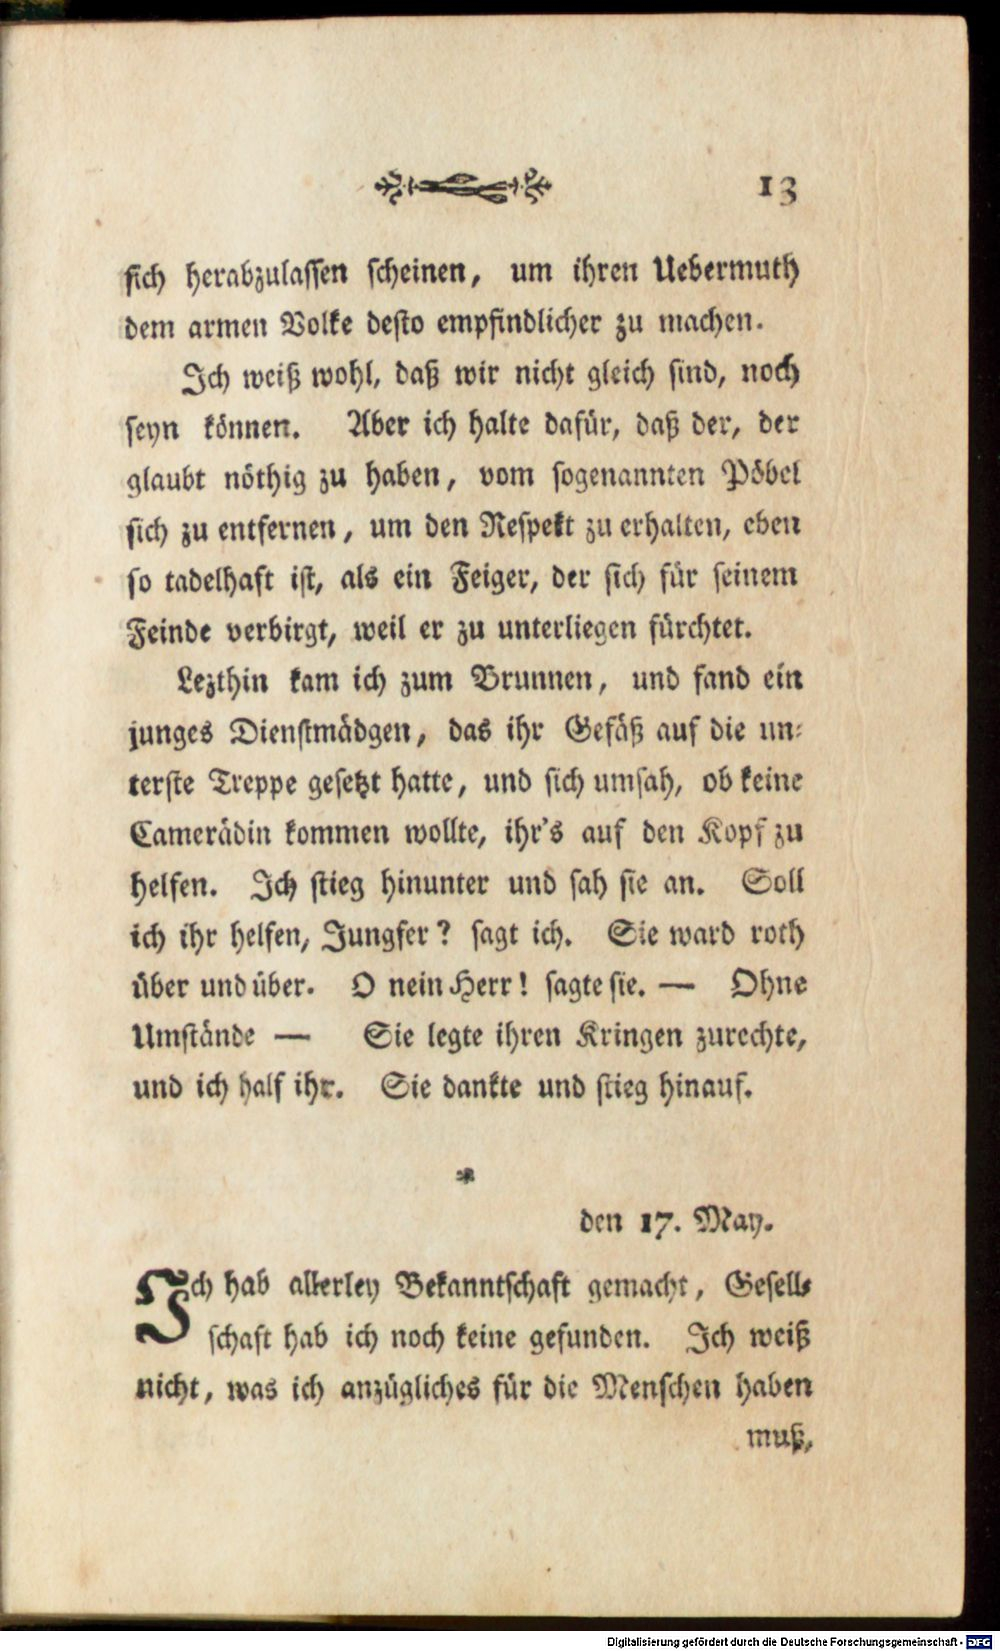 13
sich herabzulassen scheinen, um ihren Uebermuth
dem armen Volke desto empfindlicher zu machen.
Ich weiß wohl, daß wir nicht gleich sind, noch
seyn können. Aber ich halte dafür, daß der, der
glaubt nöthig zu haben, vom sogenannten Pöbel
sich zu entfernen, um den Respekt zu erhalten, eben
so tadelhaft ist, als ein Feiger, der sich für seinem
Feinde verbirgt, weil er zu unterliegen fürchtet.
Lezthin kam ich zum Brunnen, und fand ein
junges Dienstmädgen, das ihr Gefäß auf die un-
terste Treppe gesetzt hatte, und sich umsah, ob keine
Camerädin kommen wollte, ihr's auf den Kopf zu
helfen. Ich stieg hinunter und sah sie an. Soll
ich ihr helfen, Jungfer? sagt ich. Sie ward roth
über und über. O nein Herr! sagte sie. — Ohne
Umstände — Sie legte ihren Kringen zurechte,
und ich half ihr. Sie dankte und stieg hinauf.
*
den 17. May.
Ich hab allerley Bekanntschaft gemacht, Gesell-
schaft hab ich noch keine gefunden. Ich weiß
nicht, was ich anzügliches für die Menschen haben
muß,
Digitalisierung gefördert durch die Deutsche Forschungsgemeinschaft - DFG